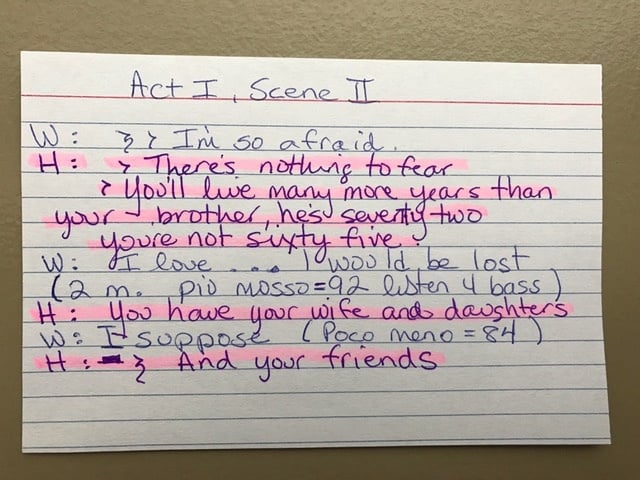 Act I, Scene II
W: I'm so afraid.
H: There's nothing to fear
You'll live many more years than
your brother, he's seventy two
you're not sixty five.
W: I love .... I would be lost
(2 m. più mosso = 92 listen 4 bass)
H: You have your wife and daughters
W: I suppose (Poco meno = 84)
H: And your friends